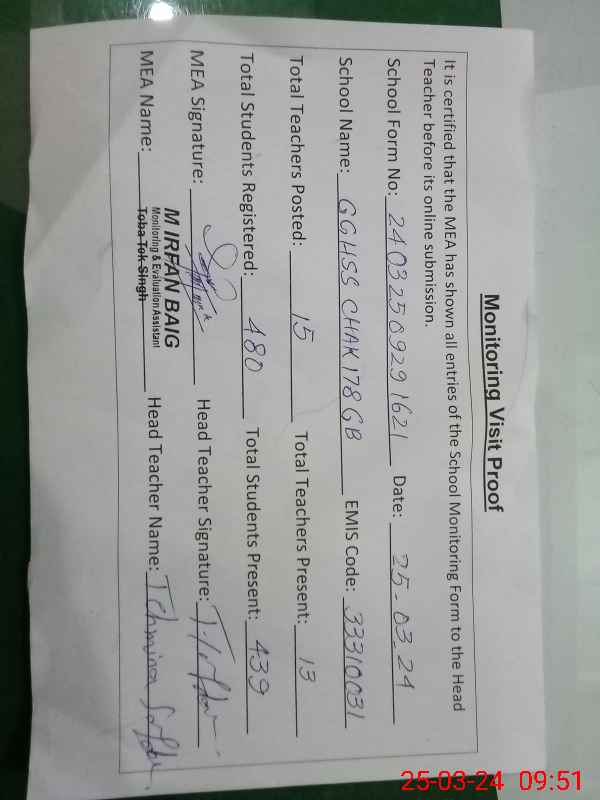 Monitoring Visit Proof
It is certified that the MEA has shown all entries of the School Monitoring Form to the Head
Teacher before its online submission.
School Form No: 24032509291621 Date: 25-03-24
School Name: GGHSS CHAK 178 GB EMIS Code: 33310031
Total Teachers Posted: 15 Total Teachers Present: 13
Total Students Registered: 480 Total Students Present: 439
MEA Signature: Head Teacher Signature:
MEA Name: M IRFAN BAIG Head Teacher Name:
Monitoring & Evaluation Assistant
Toba Tek Singh
25-03-24 09:51